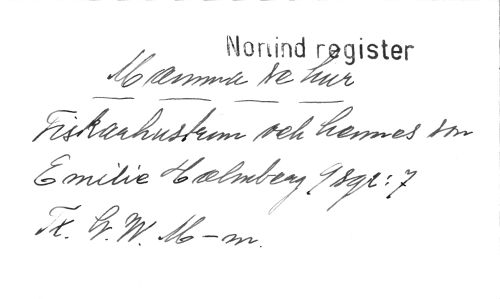 Nomind register
Mamma se hur
Fiskarhustrun och hennes son
Emilie Holmberg 9 sgr: 7
Tr. G. W. M-m.